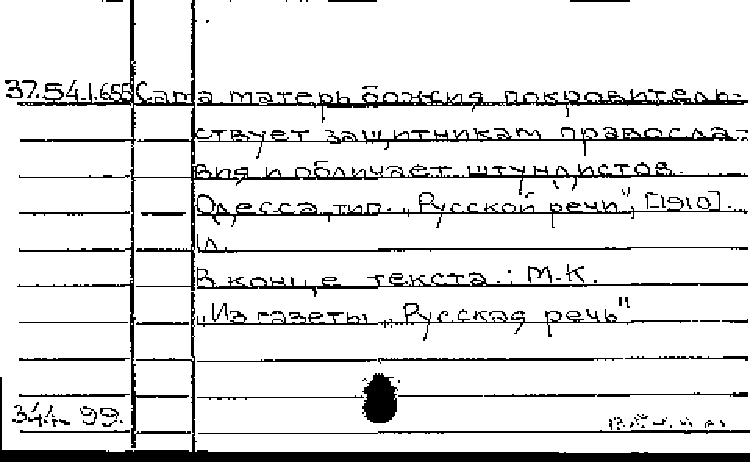 37.54.1.655 Сама матерь божия покровитель-
ствует защитникам правосла-
вия и обличает штундистов.
Одесса, тип. „Русской речи", [1910].
1л.
В конце текста: М.К.
„Из газеты „Русская речь"
344 99.